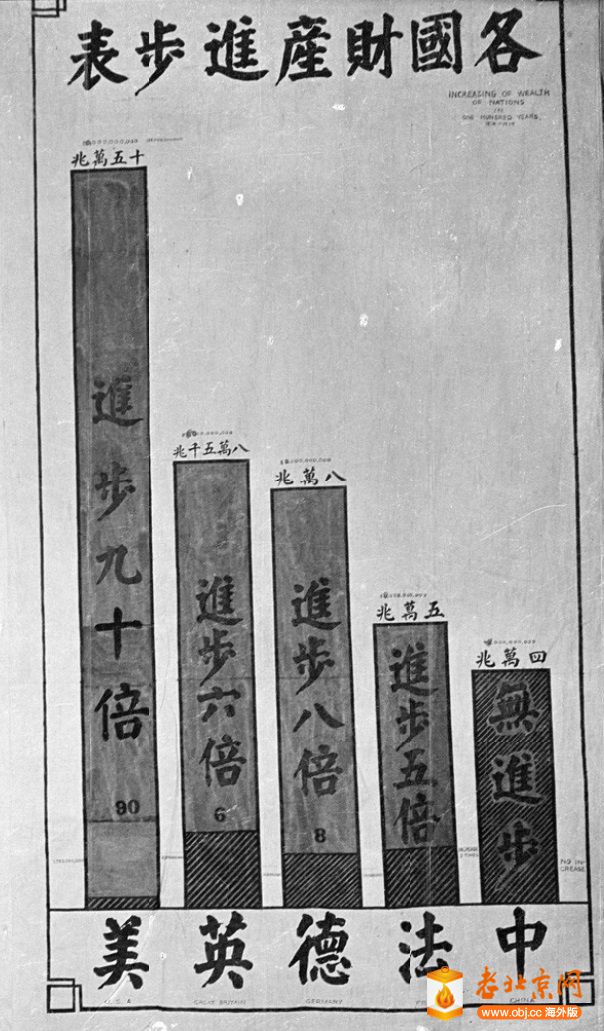 各國財産進步表
INCREASING OF WEALTH
OF NATIONS
IN
ONE HUNDRED YEARS
四萬兆
無進步
NO IN-
CREASE
五萬兆
進步五倍
八萬兆
進步八倍
8
八萬五千兆
進步六倍
6
十五萬兆
進步九十倍
90
中
法
德
英
美
CHINA
GERMANY
GREAT BRITAIN
U.S.A
老北京网
www.obj.cc 海外版